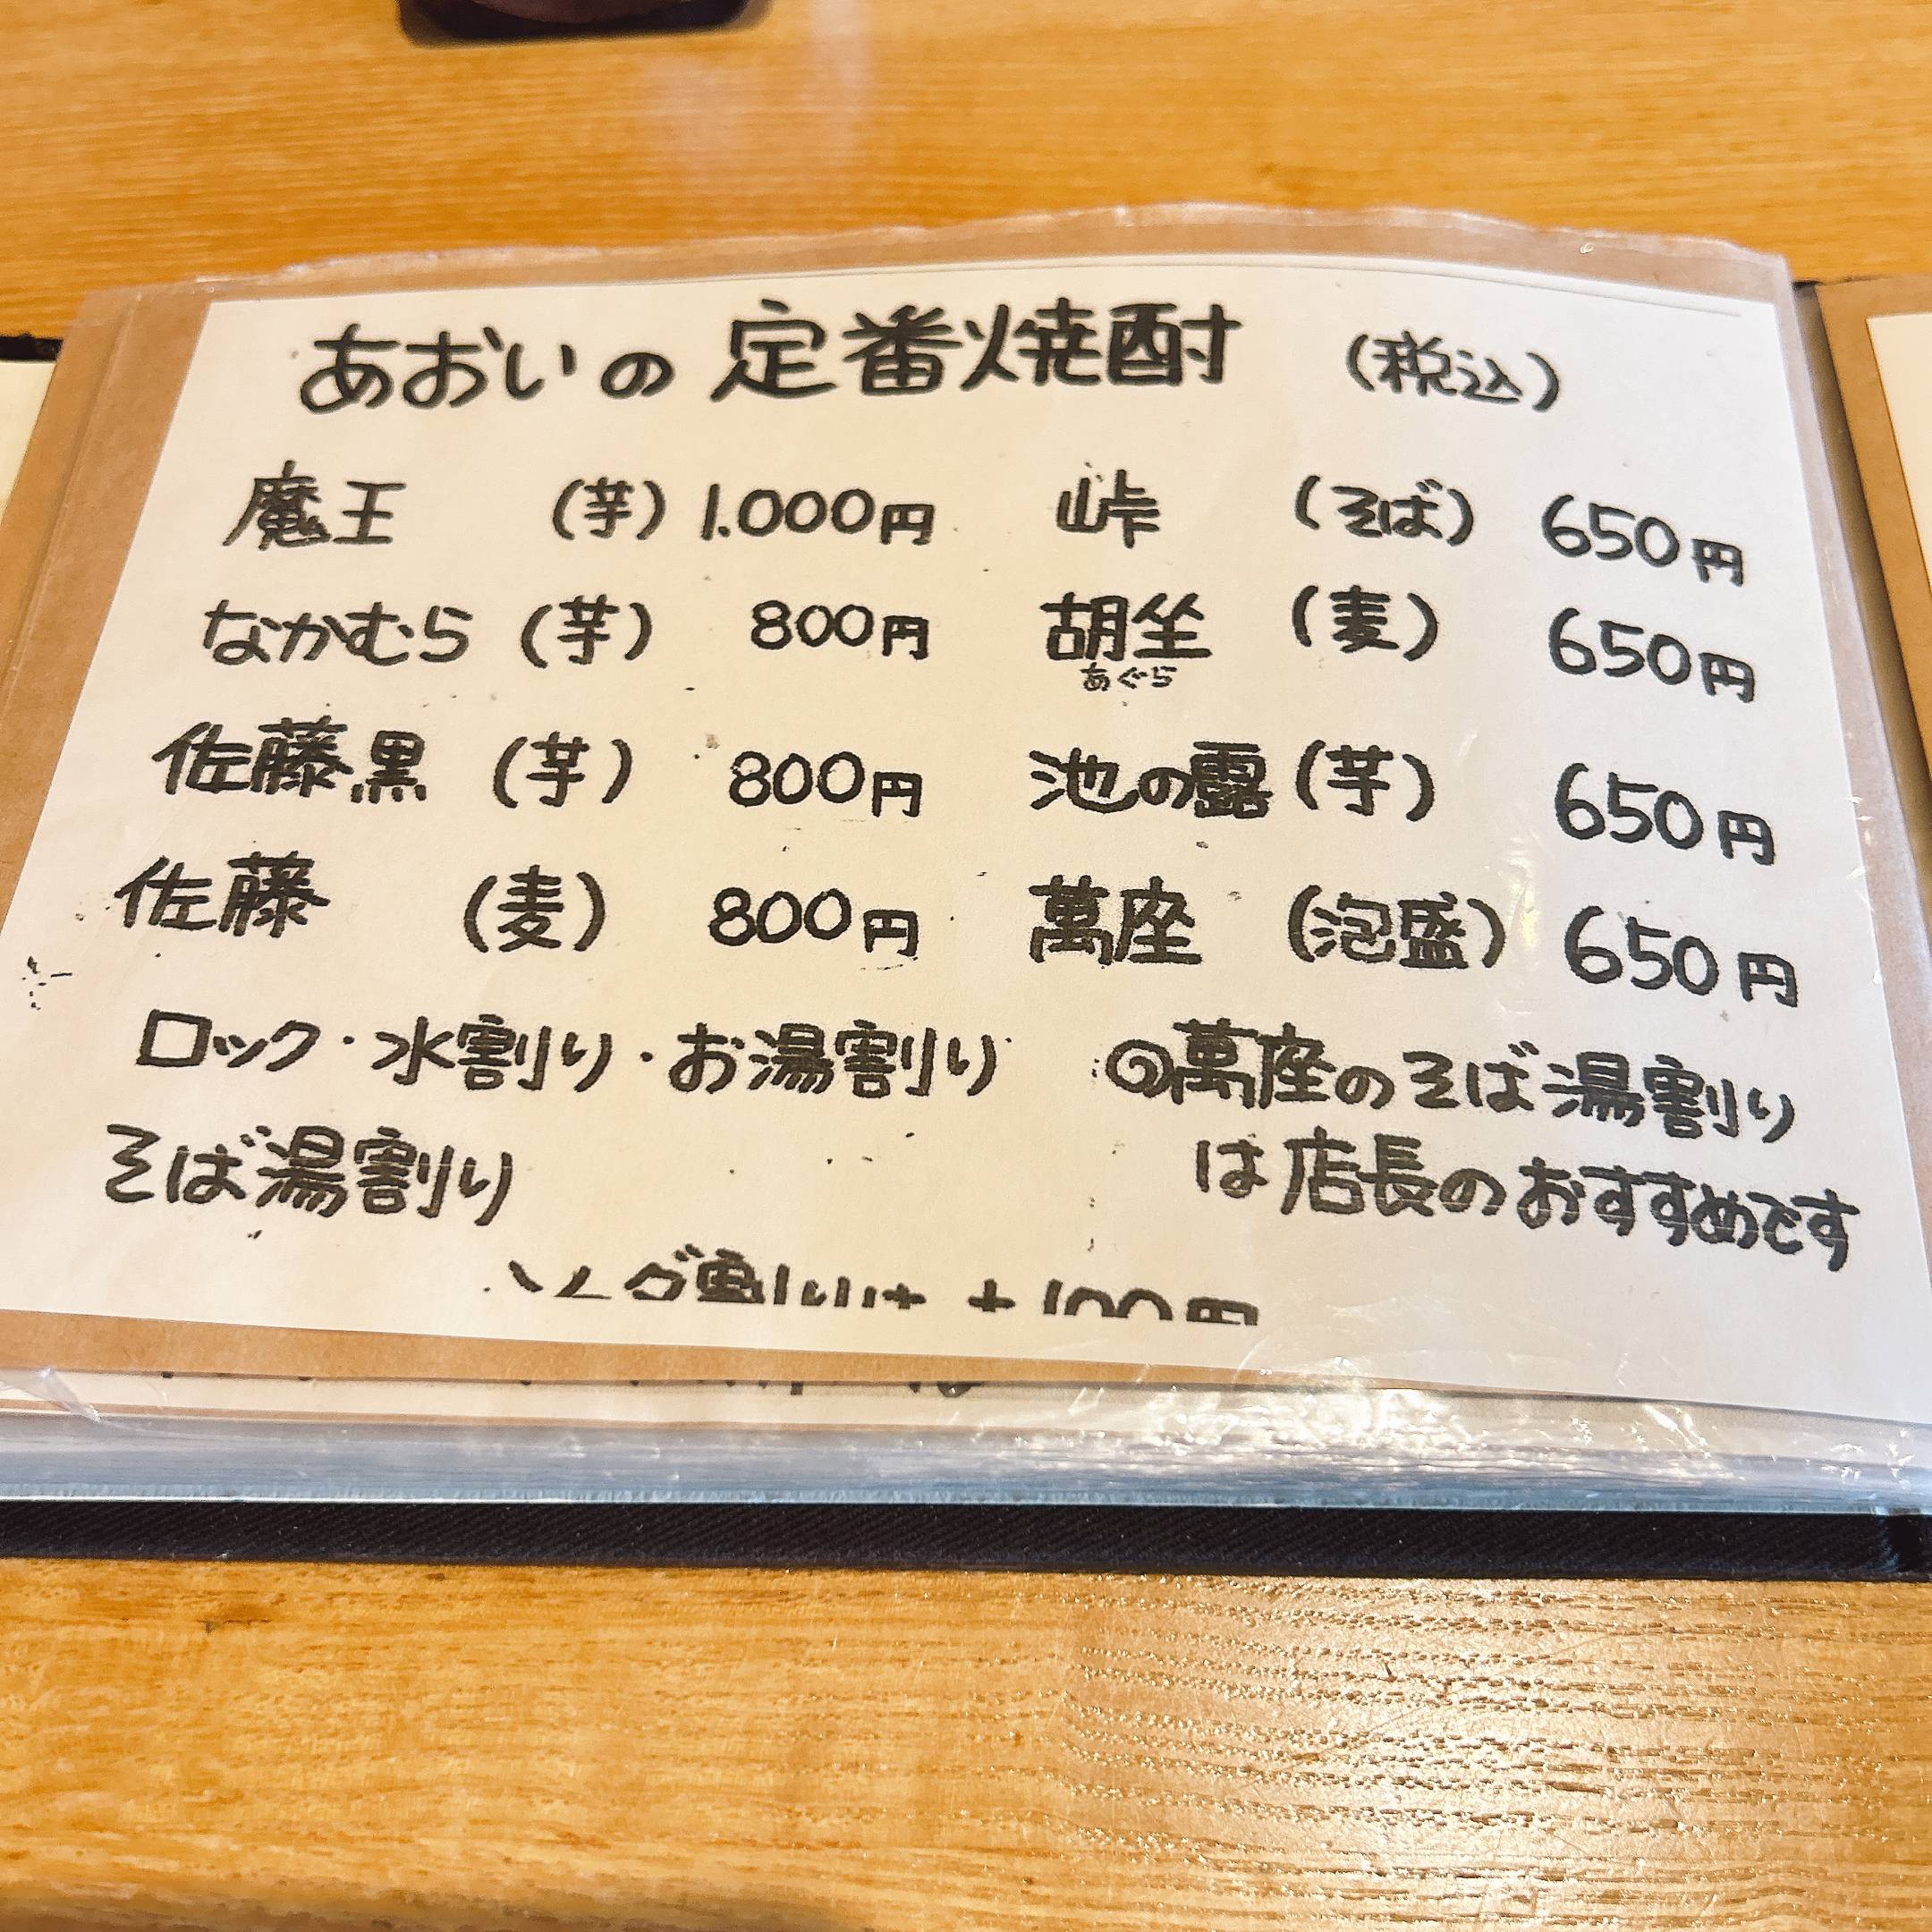 あおいの定番焼酎 (税込)
魔王 (芋) 1.000円
なかむら (芋) 800円
佐藤黒 (芋) 800円
佐藤 (麦) 800円
峠 (そば) 650円
胡坐 (麦) 650円
あぐら
池の露 (芋) 650円
萬座 (泡盛) 650円
ロック・水割り・お湯割り
そば湯割り
◎萬座のそば湯割り
は店長のおすすめです
+100円